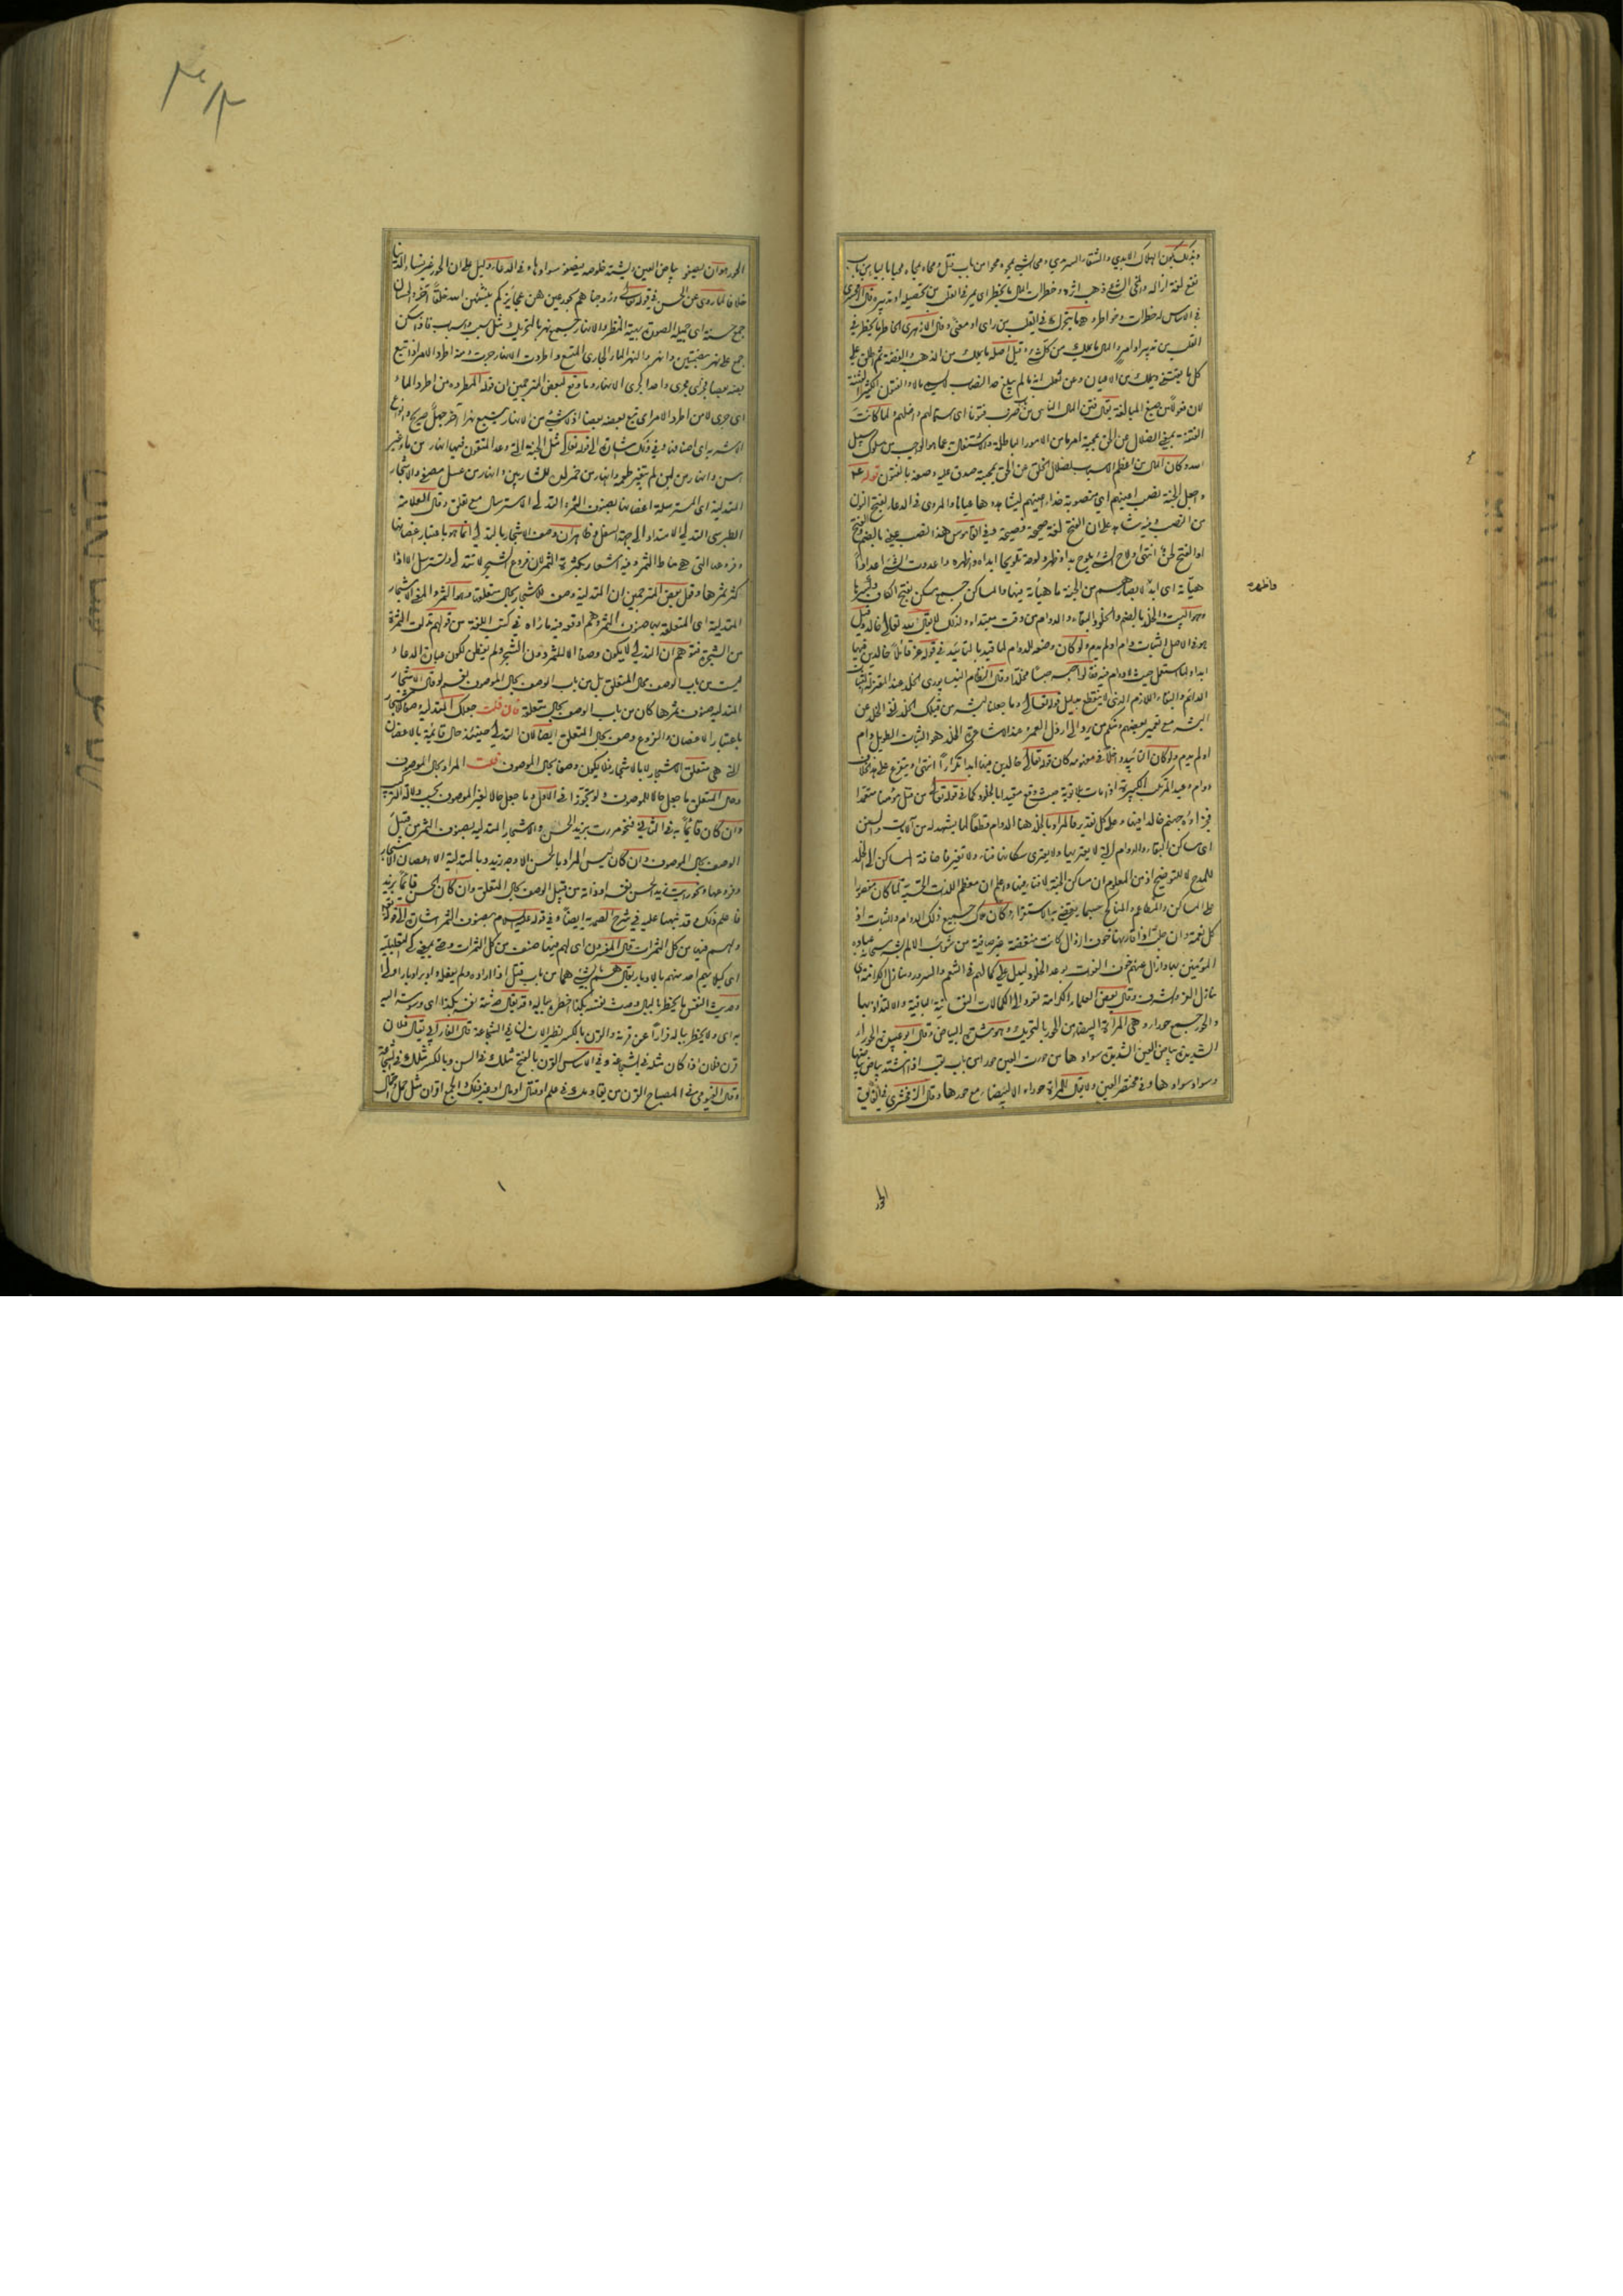 وبذلك يكون الهلاك الابدي والشقاء السرمدي ومحى الشيء يمحوه محوا من باب قتل ومحاه يمحاه محيا بالياء من باب
نفع لغة ازاله وامحى الشيء ذهب اثره وخطرات المال ما يخطر اي يمر في القلب من تحصيله او تدبيره قال الزمخشري
في الاساس له خطرات وخواطر وهو ما يتحرك في القلب من راي او معنى وقال الازهري الخاطر ما يخطر في
القلب من تدبير او امر والمال ما يملك من كل شيء وقيل اصله ما يملك من الذهب والفضة ثم اطلق على
كل ما يقتنى ويملك من الاعيان وعن ثعلب انه ما لم يبلغ حد النصاب لا يسمى مالا والفتون الكثير الفتنة
لان فعولا من صيغ المبالغة يقال فتن المال الناس من باب ضرب فتونا اي استمالهم واضلهم ولما كانت
الفتنة بمعنى الضلال عن الحق بمحبة امر ما من الامور الباطلة والاشتغال به عما هو الواجب من سلوك سبيل
الله وكان المال من اعظم الاسباب لضلال الخلق عن الحق بمحبته صدق عليه وصفه بالفتون قوله ع
واجعل الجنة نصب اعينهم اي منصوبة حذاء اعينهم ليشاهدوها عيانا والمروي في الدعاء بفتح النون
من النصب وفيه شاهد على ان الفتح لغة صحيحة فصيحة وفي القاموس هذا نصب عيني بالضم والفتح
او الفتح لحن انتهى ولاح الشيء يلوح بدا وظهر ولوحه تلويحا ابداه واظهره واعددت الشيء اعدادا
هيأته اي ابد لابصارهم من الجنة ما هيأته فيها والمساكن جمع مسكن بفتح الكاف وكسرها
وهو البيت والخلد بالضم والخلود البقاء والدوام من وقت مبتداء ولذلك لا يقال لله تعالى خالد وقيل
هو في الاصل الثبات دام او لم يدم ولو كان وضعه للدوام لما قيد بالتابيد في قوله عز قائلا خالدين فيها
ابدا ولما استعمل حيث لا دوام فيه فقالوا حبسه حبسا مخلدا وقال النظام النيسابوري الخلد عند المعتزلة الثبات
الدائم والبقاء اللازم الذي لا ينقطع بدليل قوله تعالى وما جعلنا لبشر من قبلك الخلد نفى الخلد عن
البشر مع تعمير بعضهم ومنكم من يرد الى ارذل العمر وعند الاشاعرة الخلد هو الثبات الطويل دام
او لم يدم ولو كان التابيد داخلا في مفهومه كان قوله تعالى خالدين فيها ابدا تكرارا انتهى ويتفرع على هذا الخلاف
دوام وعيد المرتكب الكبيرة اذا مات بلا توبة حيث وقع مقيدا بالخلود كما في قوله تعالى من قتل مؤمنا متعمدا
فجزاؤه جهنم خالدا فيها وعلى كل تقدير فالمراد بالخلد هنا الدوام قطعا لما يشهد له من الايات والسنن
اي مساكن البقاء والدوام التي لا يعتريها ولا يعتري سكانها فناء ولا تغير فاضافة المساكن الى الخلد
للمدح لا للتوضيح اذ من المعلوم ان مساكن الجنة لا فناء فيها واعلم ان معظم اللذات الحسية لما كان مقصورا
على المساكن والمطاعم والمناكح حسبما يقضي به الاستقراء وكان ملاك جميع ذلك الدوام والثبات اذ
كل نعمة وان جلت اذا قارنها خوف الزوال كانت منغصة غير صافية من شوائب الالم بشر سبحانه عباده
المؤمنين بها وازال عنهم خوف الفوت بوعد الخلود ليدل على كمالهم في التنعم والسرور ومنازل الكرامة اي
منازل العز والشرف وقال بعض العلماء الكرامة تعود الى الكمالات النفسانية الباقية والالتذاذ بها
والحور جمع حوراء وهي المراة البيضاء من الحور بالتحريك وهو شدة البياض وقال ابو عبيدة الحوراء
الشديدة بياض العين الشديدة سوادها من حورت العين حورا من باب تعب اذا اشتد بياض بياضها
وسواد سوادها وفي مختصر العين ولا يقال للمراة حوراء الا للبيضاء مع حورها وقال الزمخشري في الفائق
واظهره
الحور
الحور هو ان يصفو بياض العين ويشتد خلوصه فيصفو سوادها وفي الدعاء دليل على ان الحور غير نساء الدنيا
خلافا لما روي عن الحسن في قوله تعالى وزوجناهم بحور عين هن عجائزكم ينشئهن الله خلقا آخر والحسان
جمع حسنة اي جميلة الصورة بهية المنظر والانهار جمع نهر بالتحريك مثل سبب واسباب فاذا سكن
جمع على نهر بضمتين وانهر والنهر الماء الجاري المتسع واطردت الانهار جرت ومنه اطرد الامر اذا تبع
بعضه بعضا فجرى مجرى واحدا كجري الانهار وما وقع لبعض المترجمين ان قوله المطردة من اطرد الماء
اي جرى لا من اطرد الامر اي تبع بعضه بعضا اذ لا شيء من الانهار يتبع نهرا آخر جهل صريح وانواع
الاشربة اي اصنافها وفي ذلك اشارة الى قوله تعالى مثل الجنة التي وعد المتقون فيها انهار من ماء غير
آسن وانهار من لبن لم يتغير طعمه وانهار من خمر لذة للشاربين وانهار من عسل مصفى والاشجار
المتدلية اي المسترسلة اغصانها بصنوف الثمر والتدلي الاسترسال مع تعلق وقال العلامة
الطبرسي التدلي الامتداد الى جهة السفل وظاهر ان وصف الاشجار بالتدلي انما هو باعتبار اغصانها
وفروعها التي هي مناط الثمر وفيه اشعار بكثرة الثمر لان فروع الشجر لا تتدلى وتسترسل الا اذا
كثر ثمرها وقول بعض المترجمين ان المتدلية وصف للاشجار بحال متعلقها وهو الثمر والمعنى الاشجار
المتدلية اي المتعلقة بها صنوف الثمر وهم اوقعه فيه ما رآه في كتب اللغة من قولهم تدلت الثمرة
من الشجرة فتوهم ان التدلي لا يكون وصفا الا للثمر دون الشجر ولم يتفطن لكون عبارة الدعاء
ليست من باب الوصف بحال المتعلق بل من باب الوصف بحال الموصوف نفسه ولو قال والاشجار
المتدلية صنوف ثمرها كان من باب الوصف بحال متعلقه فان قلت جعلك المتدلية وصفا للاشجار
باعتبار الاغصان والفروع وصف بحال المتعلق ايضا لان التدلي حينئذ حال قائمة بالاغصان
التي هي متعلق الاشجار لا بالاشجار فلا يكون وصفا بحال الموصوف قلت المراد بحال الموصوف
وحال المتعلق ما جعل حالا للموصوف ولو تجوزا في الاول وما جعل حالا لغير الموصوف بحسب دلالة التركيب
وان كان قائما به في الثاني فنحو مررت بزيد الحسن والاشجار المتدلية بصنوف الثمر من قبيل
الوصف بحال الموصوف وان كان ليس المراد بالحسن الا وجه زيد وبالمتدلية الا اغصان الاشجار
وفروعها ونحو رايت زيدا الحسن نفسه او ذاته من قبيل الوصف بحال المتعلق وان كان الحسن قائما بزيد
فاعلم ذلك وقد نبهنا عليه في شرح الصمدية ايضا وفي قوله عليه السلام بصنوف الثمر اشارة الى قوله تعالى
ولهم فيها من كل الثمرات قال المفسرون اي لهم فيها صنف من كل الثمرات وحتى بمعنى كي التعليلية
اي كيلا يهم احد منهم بالادبار يقال هم بالشيء هما من باب قتل اذا اراده ولم يفعله وادبر ادبارا ولى
وحديث النفس ما يخطر بالبال وحدث نفسه بكذا اخطره بباله وقد يقال حدثته نفسه بكذا اي وسوست اليه
به اي ولا يخطر بباله فرارا عن قرنه والقرن بالكسر نظير الانسان في الشجاعة قال الفارابي يقال فلان
قرن فلان اذا كان مثله في الشجاعة وفي الاساس القرن بالفتح مثلك في السن وبالكسر مثلك في الشجاعة
وقال الفيومي في المصباح القرن من يقاومك في علم او قتال او مال او غير ذلك والجمع اقران مثل حمل واحمال